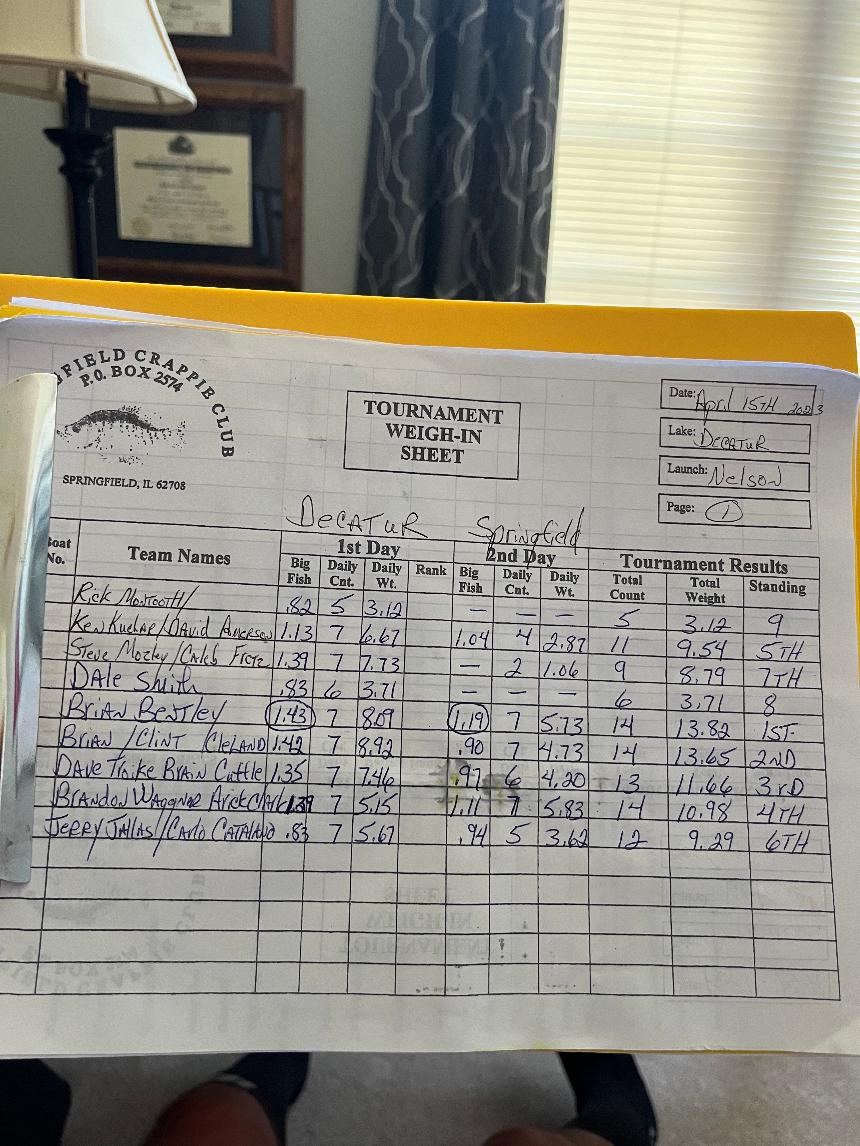 FIELD CRAPPIE CLUB
P.O. BOX 2574
SPRINGFIELD, IL 62708
TOURNAMENT
WEIGH-IN
SHEET
Date: April 15TH 2023
Lake: DECATUR
Launch: Nelson
Page: 1
DECATUR Springfield
1st Day 2nd Day Tournament Results
Boat No. Team Names Big Fish Daily Cnt. Daily Wt. Rank Big Fish Daily Cnt. Daily Wt. Total Count Total Weight Standing
Rick Montooth/ .82 5 3.12 — — — 5 3.12 9
Ken /David Anderson 1.13 7 6.67 1.04 4 2.87 11 9.54 5TH
Steve /Caleb 1.39 7 7.73 — 2 1.06 9 8.79 7TH
DAle Smith .83 6 3.71 — — — 6 3.71 8
BriAN BENTLEY 1.43 7 8.09 1.19 7 5.73 14 13.82 1ST
BriAN /Clint /CleLAND 1.42 7 8.92 .90 7 4.73 14 13.65 2ND
DAve BrAin Cuttle 1.35 7 7.46 .97 6 4.20 13 11.66 3rD
BrANDON 1.39 7 5.15 1.11 7 5.83 14 10.98 4TH
Jerry JAllas/Carlo CATAlANO .83 7 5.67 .94 5 3.62 12 9.29 6TH